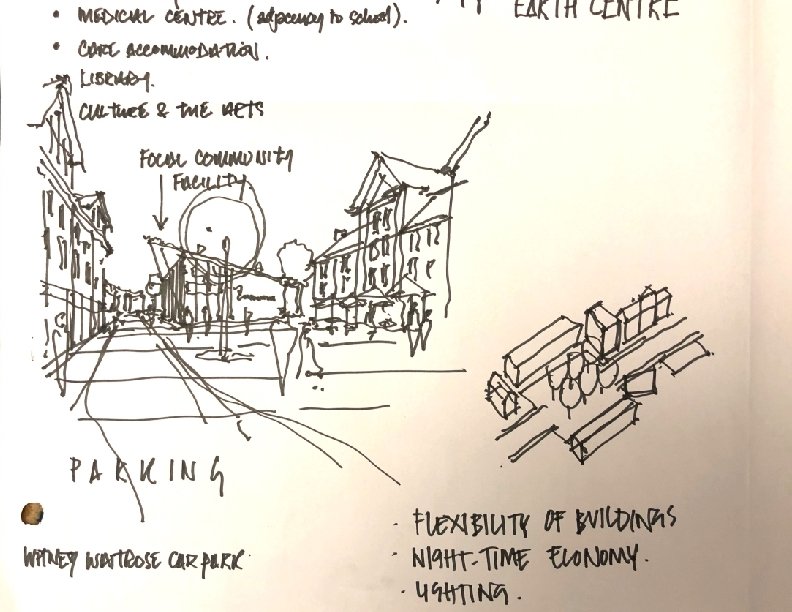 EARTH CENTRE
• MEDICAL CENTRE. (adjacency to school).
• CARE ACCOMMODATION.
• LIBRARY.
CULTURE & THE ARTS
FOCAL COMMUNITY
FACILITY.
PARKING
WITNEY WAITROSE CAR PARK
• FLEXIBILITY OF BUILDINGS
• NIGHT-TIME ECONOMY.
• LIGHTING.